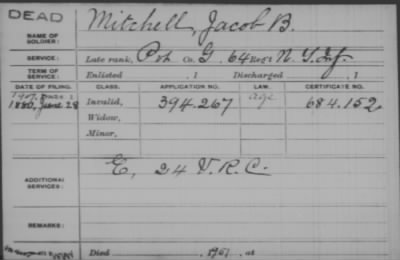 DEAD
NAME OF SOLDIER: Mitchell, Jacob B.
SERVICE: Late rank, Pvt Co. G, 64 Reg't N.Y. Inf.
TERM OF SERVICE: Enlisted , 1 Discharged , 1
DATE OF FILING. CLASS. APPLICATION NO. LAW. CERTIFICATE NO.
1907
1880, June 28 Invalid, 394.267 age 684.152
Widow,
Minor,
ADDITIONAL SERVICES: E, 24 V.R.C.
REMARKS:
Died , 190 , at